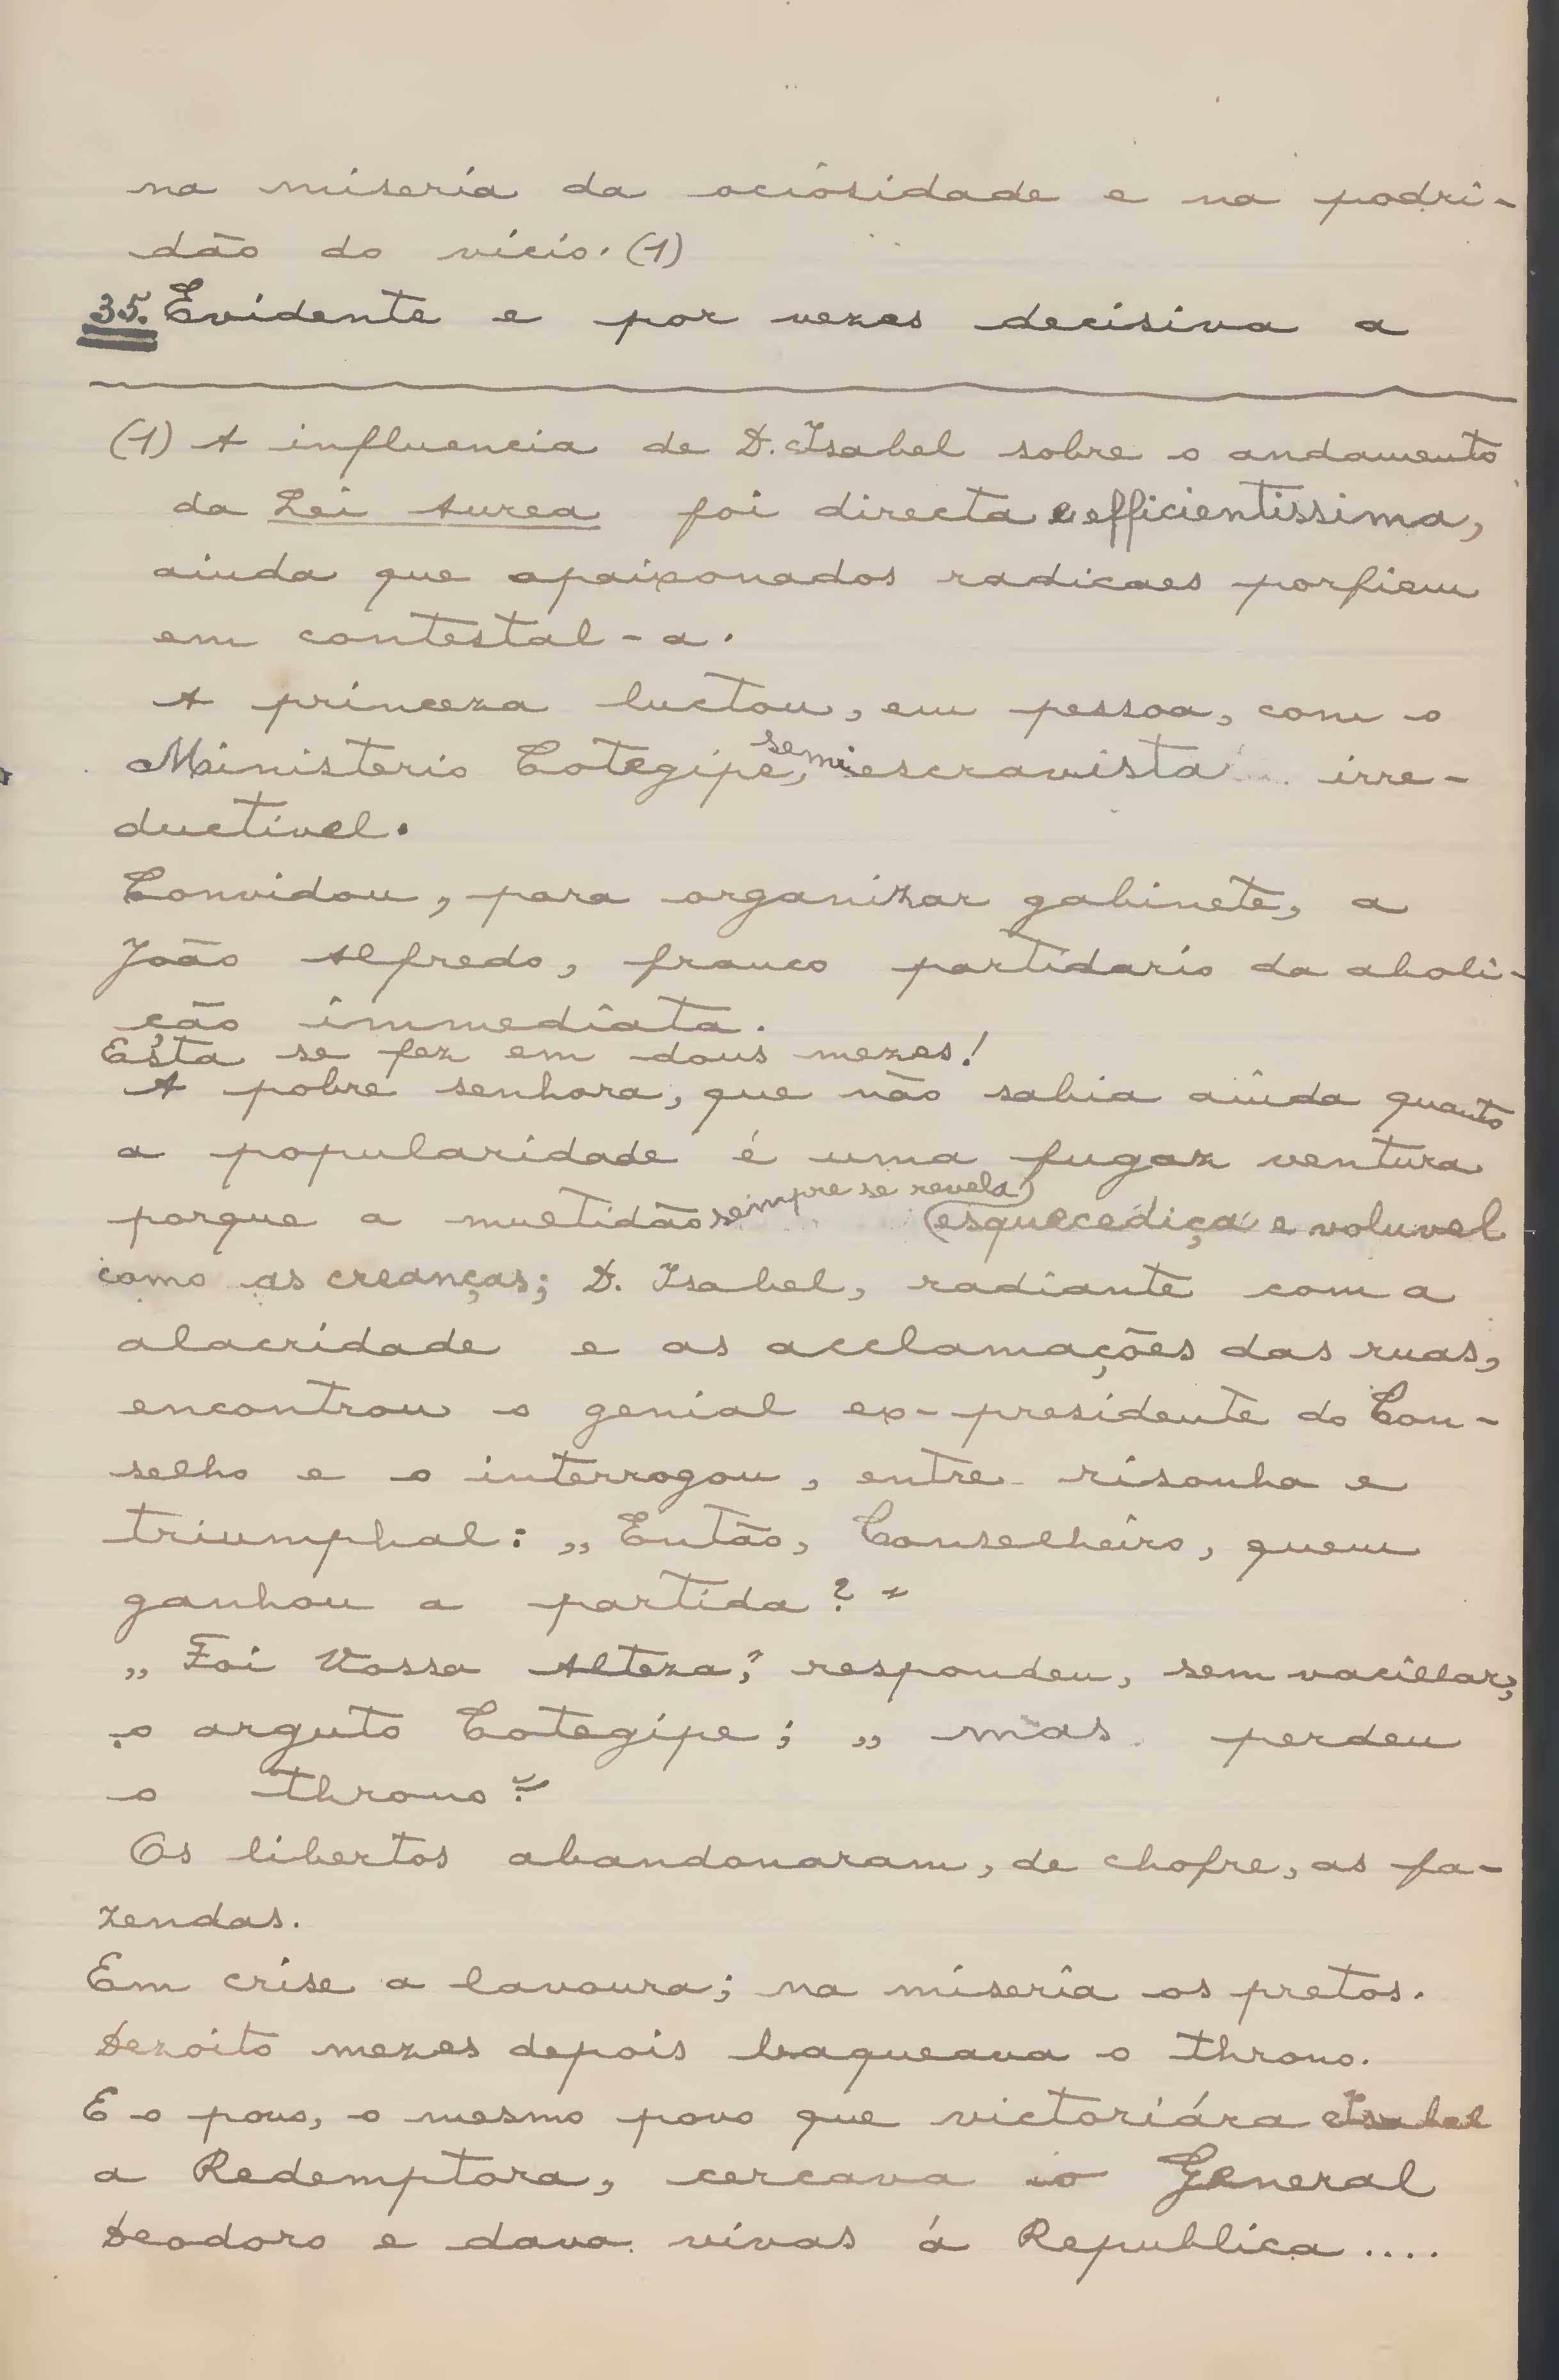 na miseria da ociosidade e na podri-
dão do vicio. (1)
35. Evidente e por vezes decisiva a
(1) A influencia de D. Isabel sobre o andamento
da Lei Aurea foi directa e efficientissima,
ainda que apaixonados radicaes porfiem
em contestal-a.
A princeza luctou, em pessoa, com o
Ministerio Cotegipe, semi escravista irre-
ductivel.
Convidou, para organizar gabinete, a
João Alfredo, franco partidario da aboli-
ção immediata.
Esta se fez em dous mezes!
A pobre senhora, que não sabia ainda quanto
a popularidade é uma fugaz ventura
porque a multidão sempre se revela esquecediça e voluvel
como as creanças; D. Isabel, radiante com a
alacridade e as acclamações das ruas,
encontrou o genial ex-presidente do Con-
selho e o interrogou, entre risonha e
triumphal: „Então, Conselheiro, quem
ganhou a partida?"
„Foi Vossa Alteza", respondeu, sem vacillar,
o arguto Cotegipe; „mas perdeu
o throno".
Os libertos abandonaram, de chofre, as fa-
zendas.
Em crise a lavoura; na miseria os pretos.
Dezoito mezes depois baqueava o throno.
E o povo, o mesmo povo que victoriára Isabel
a Redemptora, cercava o General
Deodoro e dava vivas á Republica....